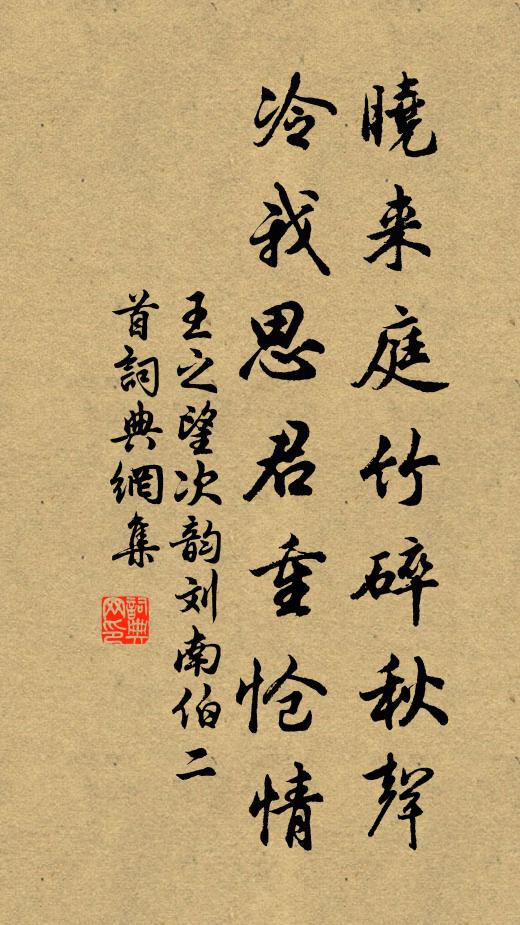 曉来庭竹碎秋聲
冷我思君重怆情
王之望次韵刘南伯二
首詞典網集
詞典
网印